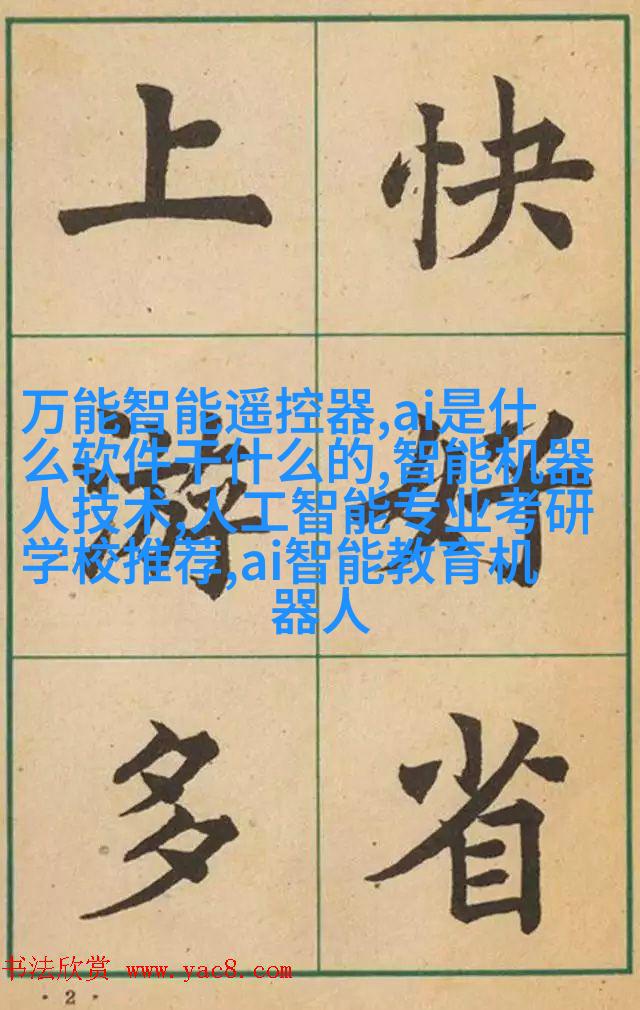 上游多
快好省
万能智能遥控器,ai是什
么软件干什么的,智能机器
人技术,人工智能专业考研
学校推荐,ai智能教育机
器人
书法欣赏 www.yac8.com
·2·